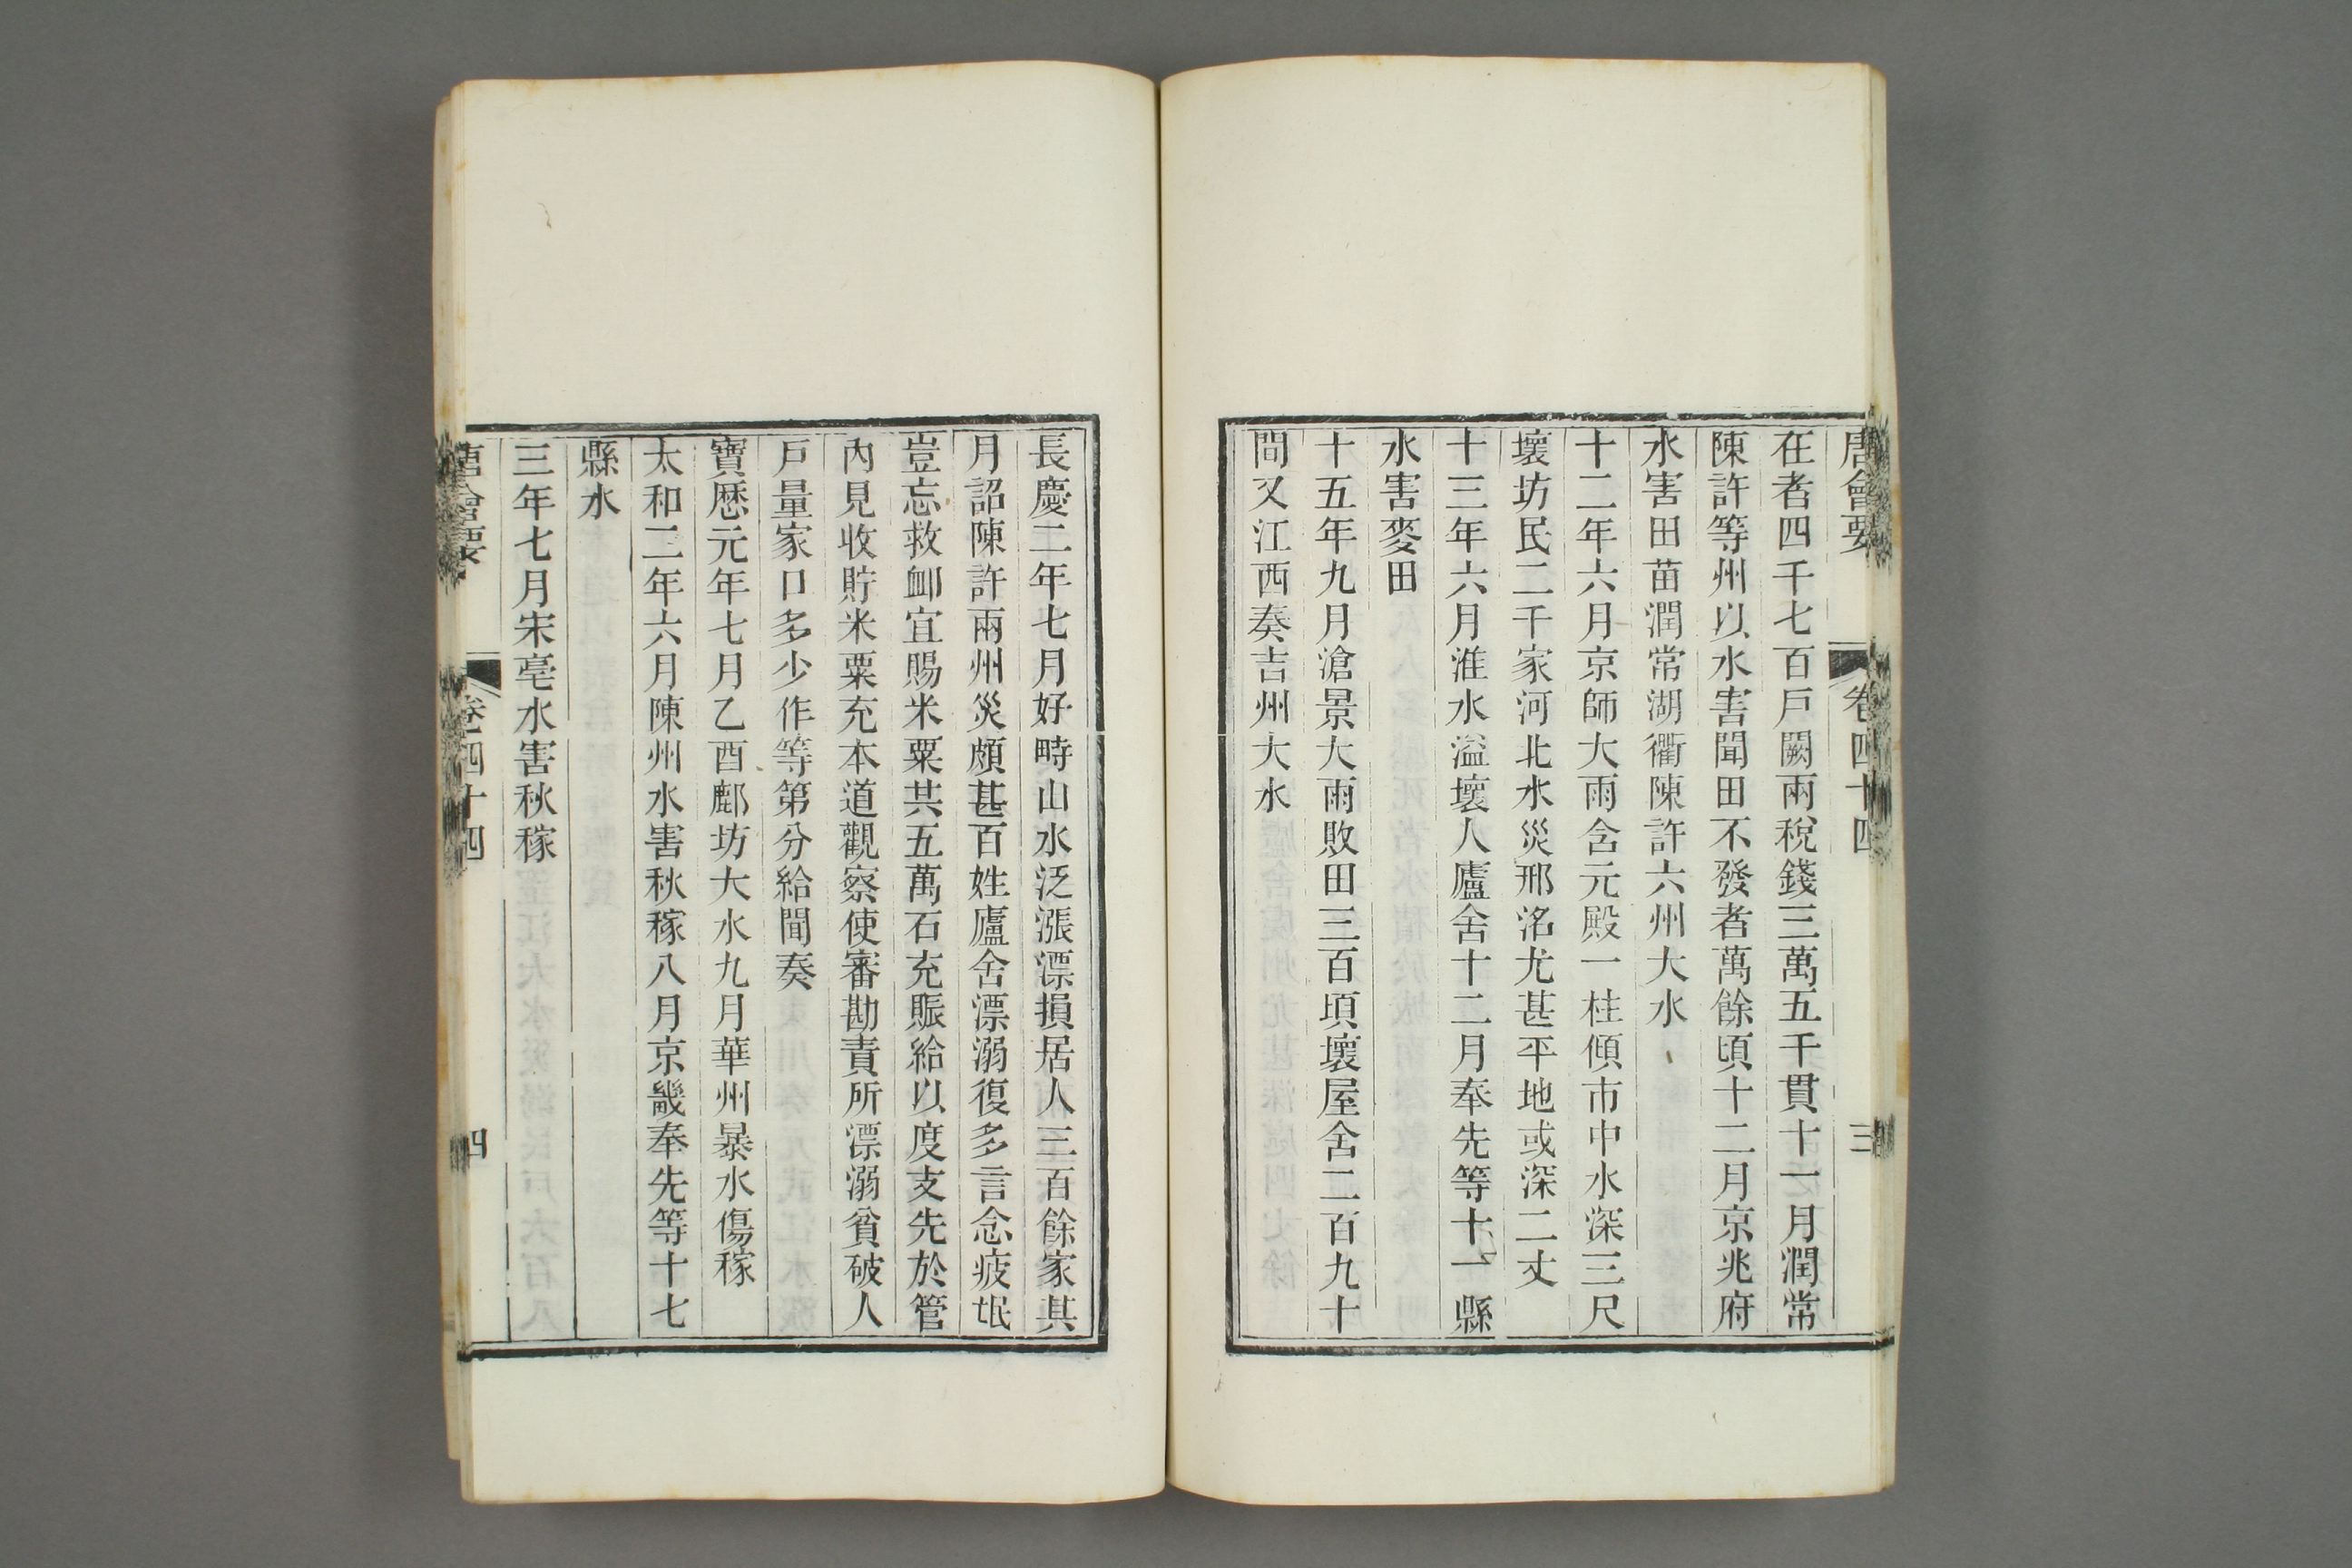 唐會要 卷四十四 三
在者四千七百戸闕兩稅錢三萬五千貫十一月潤常
陳許等州以水害聞田不發者萬餘頃十二月京兆府
水害田苗潤常湖衢陳許六州大水
十二年六月京師大雨含元殿一柱傾市中水深三尺
壞坊民二千家河北水災邢洺尤甚平地或深二丈
十三年六月淮水溢壞人廬舍十二月奉先等十一縣
水害麥田
十五年九月滄景大雨敗田三百頃壞屋舍二百九十
間又江西奏吉州大水
長慶二年七月好畤山水泛漲漂損居人三百餘家其
月詔陳許兩州災頗甚百姓廬舍漂溺復多言念疲氓
豈忘救卹宜賜米粟共五萬石充賑給以度支先於管
內見收貯米粟充本道觀察使審勘責所漂溺貧破人
戸量家口多少作等第分給聞奏
寶歷元年七月乙酉鄜坊大水九月華州暴水傷稼
太和二年六月陳州水害秋稼八月京畿奉先等十七
縣水
三年七月宋亳水害秋稼
唐會要 卷四十四 四